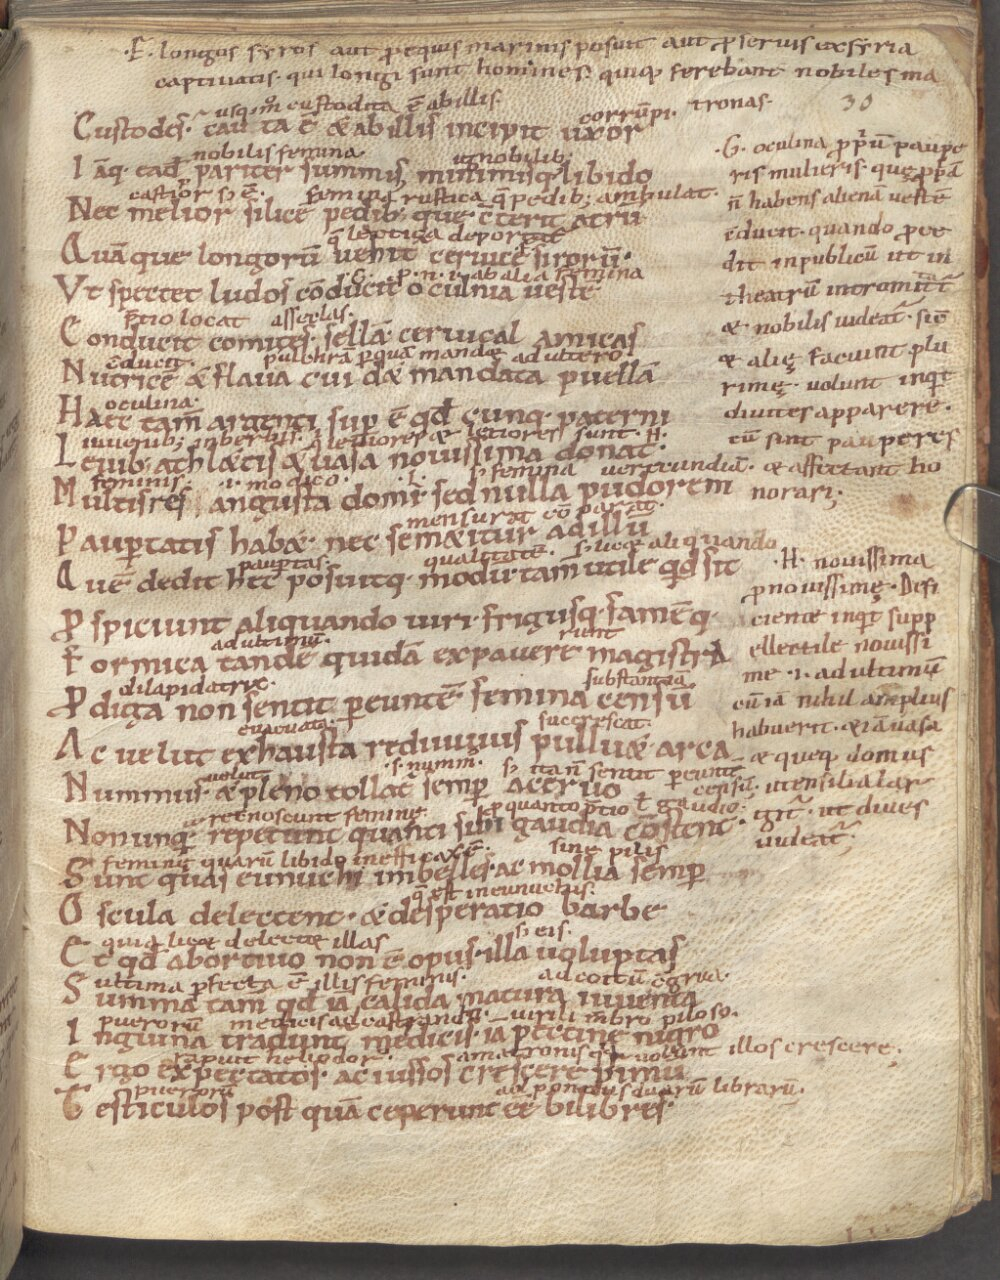 ·F· longos syros aut pro equis marinis posuit aut pro servis exsyria
captivatis· qui longi sunt homines· quiq; ferebant nobiles ma
tronas· 30
usq; custodita ē abillis· corrūpi·
Custodes· cauta ē & abillis incipit uxor
nobilis femina· ignobilib;
Iāq· eadē pariter summis, minimisq; libido
femina rustica q̄ pedib; ambulat·
Nec melior silicē pedib; que cōterit atrū
q̄ leptiga deportat
Quā que longorū uehit cervice sirorū·
ab alia femina
Vt spectet ludos cōducit oculnia uestē
p̄tio locat assetlas·
Conducit comites, sellā cervical amicas
cōducit· pulchrā per quā mandet adultero
Nutricē & flava cui d& mandata puellā
oculina·
Haec tam̄ argenti sup ē qd çunq· paterni
iuvenib; inberbis· sunt· H·
Levib; athlaetis & uasa novissima donat·
feminis· ·i· modico· s· femina verecundiā·
Multis res angusta domi· sed nulla pudorem
mensurat
Paupertatis hab&· nec sem&itur ad illū
paupertas· qualitatē· aliquando
Quē dedit hec posuitq· modū· tam utile qd sit
Pspiciunt aliquando viri· frigusq· famēq·
ad ultimū·
Formica tandē quidā expavere magistra
dilapidatrix· substantiā
Pdiga non sentit pereuntē femina censū
evacuata· succrescat·
Ac velut exhausta redivivus pullul& arca
velut s· numm̄· sentit pereunt
Nummus· & pleno tollat semp acervo censū·
recnoscunt femine quanto p̄tio gaudio·
Nonunq̄ repetunt quanti sibi gaudia cōstent·
femine quarū libido inefficax ē· sine pilis
Sunt quas eunuchi imbelles· ac mollia semp
q̄ est in eunuchis·
Oscula delectent· & desperatio barbe
s· eis·
Et qd abortivo non ē opus· illa voluptas
ultima pfecta ē illis feminis·
Summa tam̄ qd iā calida matura iuventa
puerorū medicis ad castrandū· virili mēbro piloso·
Inguina tradunt medicis iā pectine nigro
rapuit heliodor· volunt illos crescere·
Ergo expectatos ac iussos crescere primū
puerorū ad pondus duarū librarū·
Testiculos post quā ceperunt eē bilibres·
·G· oculina pp̄riū paupe
ris mulieris· quę pp̄iā
n̄ habens alienā vestē
cōducit· quando proce
dit in publicū ut in
theatrū intromitt
& nobilis videat· sic
& alię faciunt plu
rimę· volunt inqt
divites apparere·
cū sint pauperes
& affectant ho
norari·
·H· novissima
pro novissimę· Defi
ciente inqt supp
ellectile novissi
me ·i· ad ultimū
cū iā nihil amplius
habuerit· & iā vasa
& queq; domus
utensilia lar
git· ut dives
videat